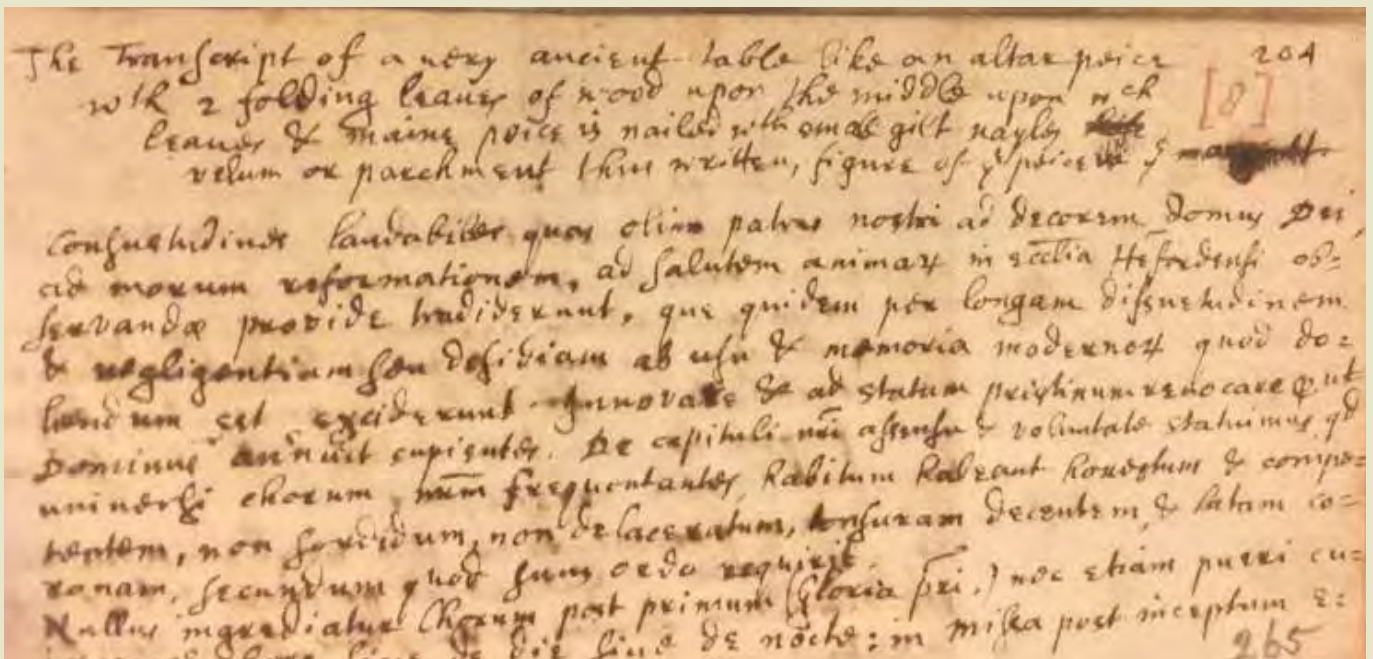 The Transcript of a very ancient table like an altar peice 204
wth 2 folding leaves of wood upon the middle upon wch [8]
leaves & maine peice is nailed with smal gilt nayles
velum or parchment thus written, figure of ye peice
Consuetudines laudabiles quas olim patres nostri ad decorem domus Dei,
ad morum reformationem, ad salutem animaꝝ in Ecclia Hefordensi ob=
servandæ provide tradiderunt, que quidem per longam dissuetudinem
& negligentiam seu desidiam ab usu & memoria modernoꝝ quod do=
lendum est exciderunt Innovare & ad statum pristinum revocare put
Dominus annuit cupientes. De capituli nri assensu & voluntate statuimus qd
universi chorum nrm frequentantes, habitum habeant honestum & compe=
tentem, non sordidum, non delaceratum, tonsuram decentem, & latam co=
ronam, secundum quod suus ordo requirit.
Nullus ingrediatur Chorum post primum (Gloria pri.) nec etiam pueri cu=
die sive de nocte: in missa post inceptum E=
265